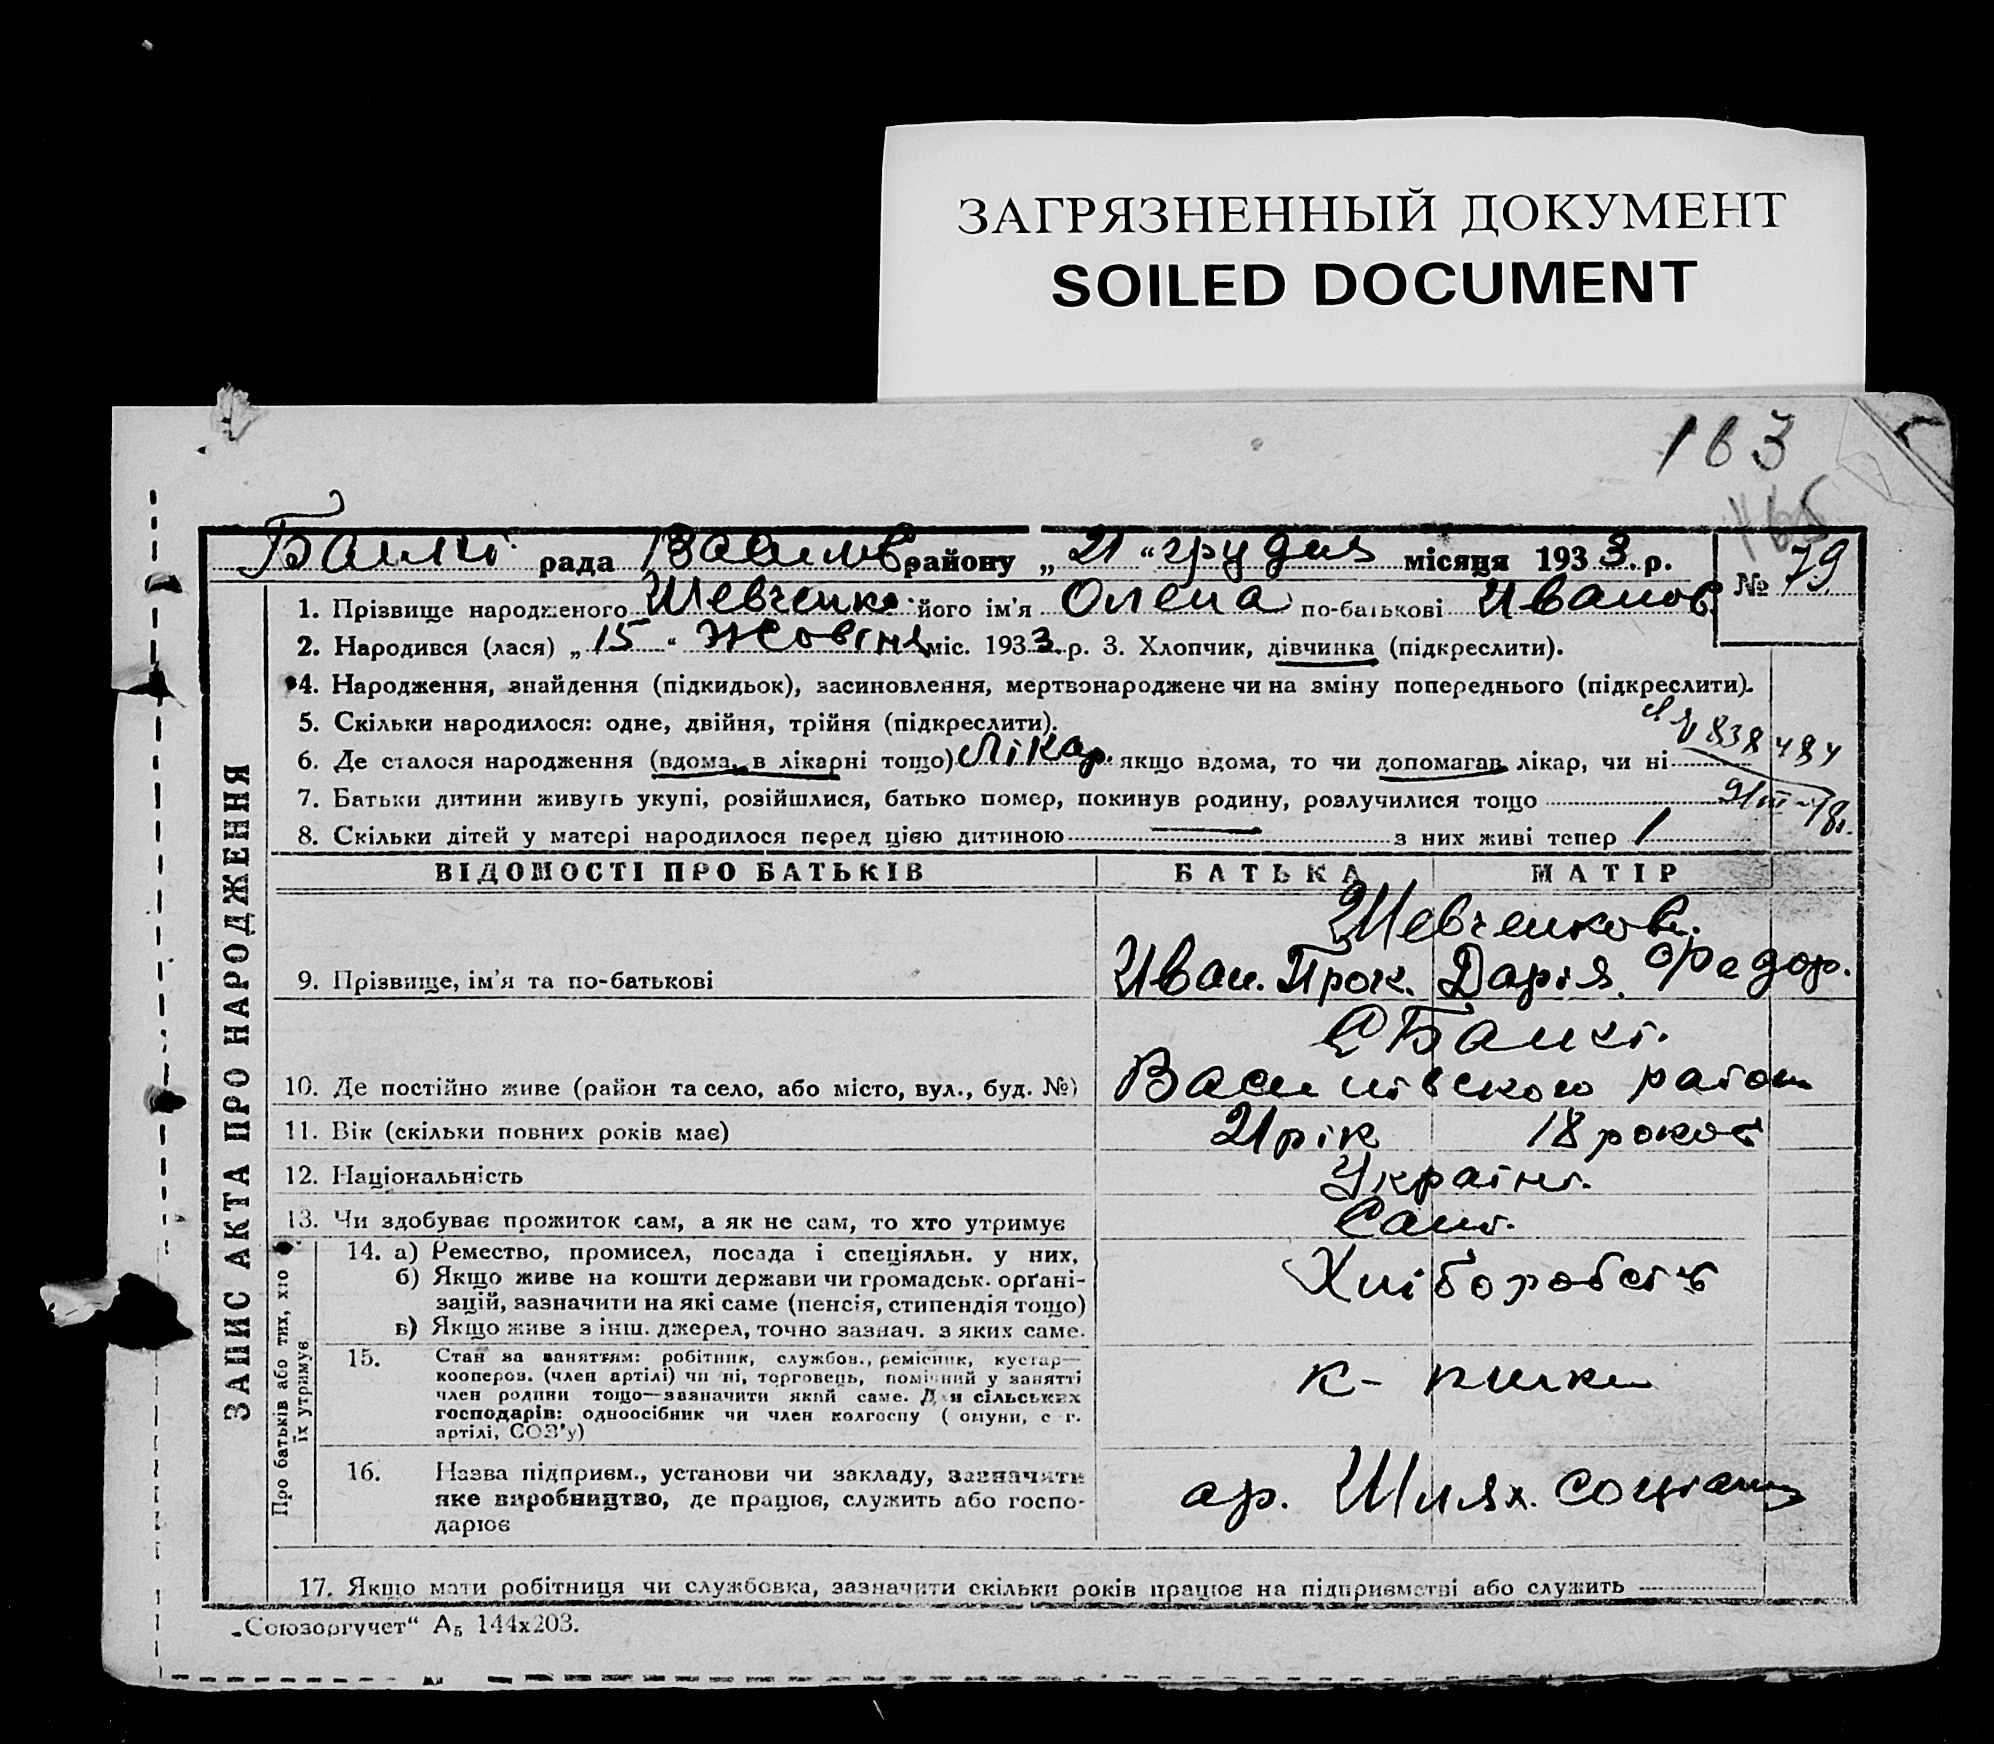 ЗАГРЯЗНЕННЫЙ ДОКУМЕНТ
SOILED DOCUMENT
163
165
Балкі рада Василів району „21“ грудня місяця 1933.р.
№ 79
1. Прізвище народженого Шевченко його ім'я Олена по-батькові Иванов.
2. Народився (лася) „15“ жовтня міс. 1933.р. 3. Хлопчик, дівчинка (підкреслити).
4. Народження, знайдення (підкидьок), засиновлення, мертвонароджене чи на зміну попереднього (підкреслити).
5. Скільки народилося: одне, двійня, трійня (підкреслити).
838484
6. Де сталося народження (вдома, в лікарні тощо) Лікар. якщо вдома, то чи допомагав лікар, чи ні
7. Батьки дитини живуть укупі, розійшлися, батько помер, покинув родину, розлучилися тощо
8. Скільки дітей у матері народилося перед цією дитиною — з них живі тепер 1
ЗАПИС АКТА ПРО НАРОДЖЕННЯ
ВІДОМОСТІ ПРО БАТЬКІВ БАТЬКА МАТІР
Шевченкові.
9. Прізвище, ім'я та по-батькові Иван. Прок. Дарія. Федор.
с Балкі.
10. Де постійно живе (район та село, або місто, вул., буд. №) Василівского району
11. Вік (скільки повних років має) 21 рік 18 років
12. Національність Україні.
13. Чи здобуває прожиток сам, а як не сам, то хто утримує Самі.
Про батьків або тих, хто їх утримує
14. а) Ремество, промисел, посада і спеціяльн. у них,
б) Якщо живе на кошти держави чи громадськ. орґані-
зацій, зазначити на які саме (пенсія, стипендія тощо)
в) Якщо живе з інш. джерел, точно зазнач. з яких саме.
Хліборобств
15. Стан за заняттям: робітник, службов., ремісник, кустар—
кооперов. (член артілі) чи ні, торговець, помічний у занятті
член родини тощо—зазначити який саме. Для сільських
господарів: одноосібник чи член колгоспу ( омуни, с г.
артілі, СОЗ'у)
к-
16. Назва підприєм., установи чи закладу, зазначити
яке виробництво, де працює, служить або госпо-
дарює
ар. Шлях. соціалізм
17. Якщо мати робітниця чи службовка, зазначити скільки років працює на підприємстві або служить
„Союзоргучет“ А₅ 144х203.